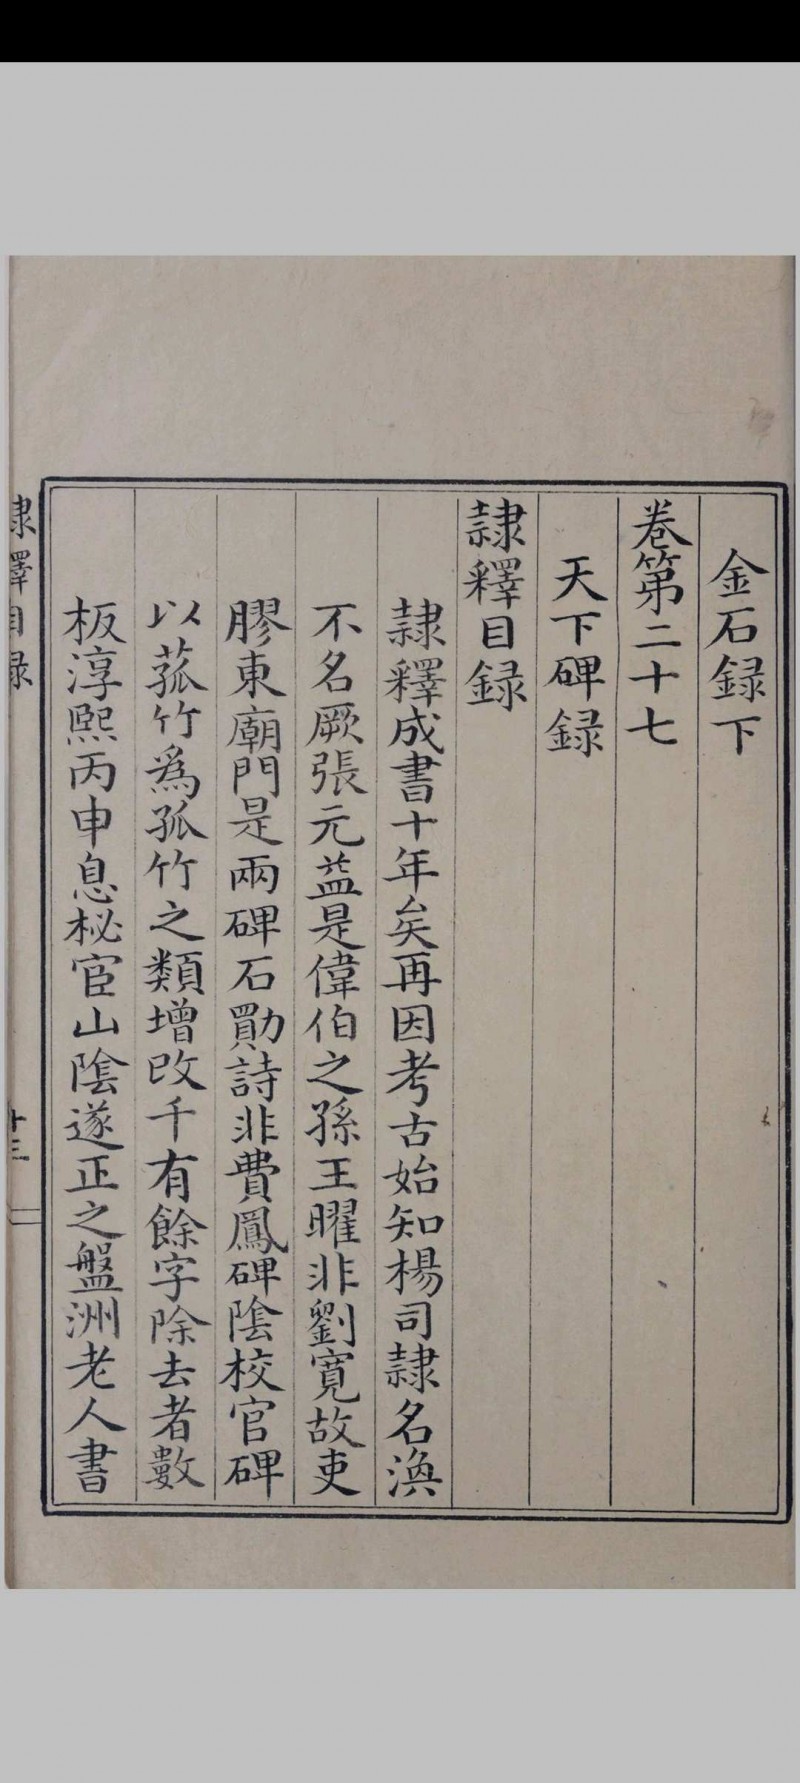 金石録下
卷第二十七
天下碑録
隷釋目録
隷釋成書十年矣再因考古始知楊司隷名渙
不名厥張元益是偉伯之孫王曜非劉寬故吏
膠東廟門是兩碑石勛詩非費鳳碑陰校官碑
以菰竹爲孤竹之類增改千有餘字除去者數
板淳熙丙申息秘宦山陰遂正之盤洲老人書
隷釋目録
十三